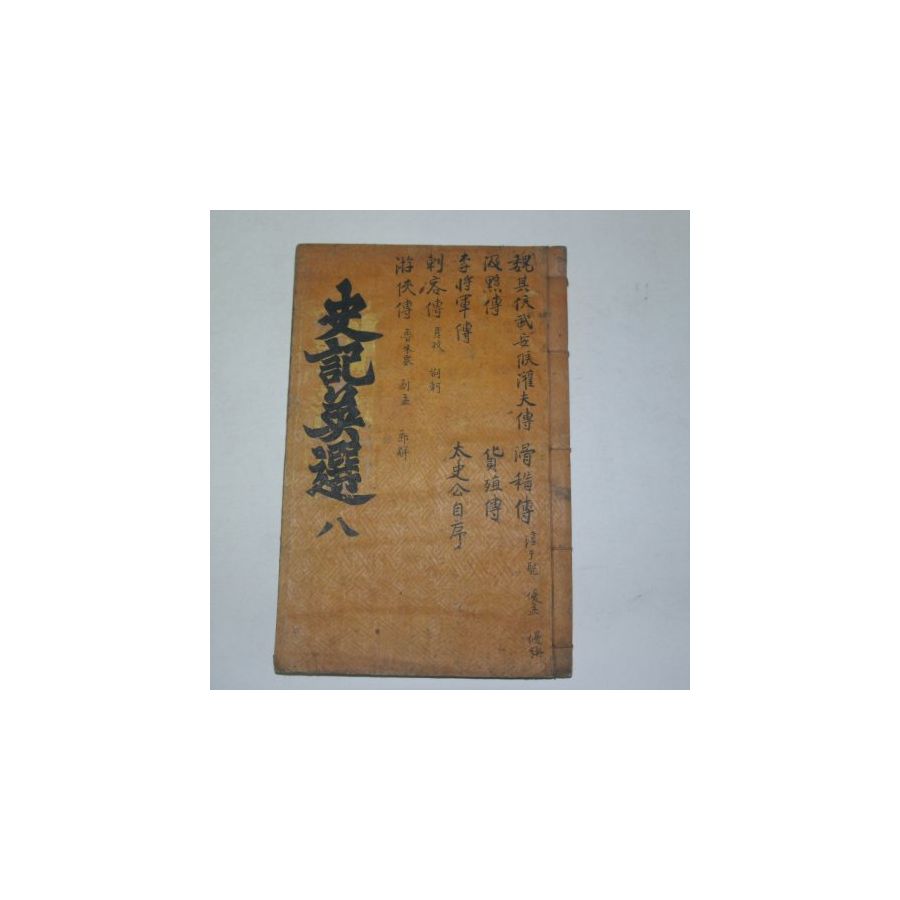 魏其侯武安侯灌夫傳
汲黯傳
李將軍傳
刺客傳 聶政 荊軻
游俠傳 魯朱家 劇孟 郭解
滑稽傳 淳于髡 優孟 優旃
貨殖傳
太史公自序
史記英選 八